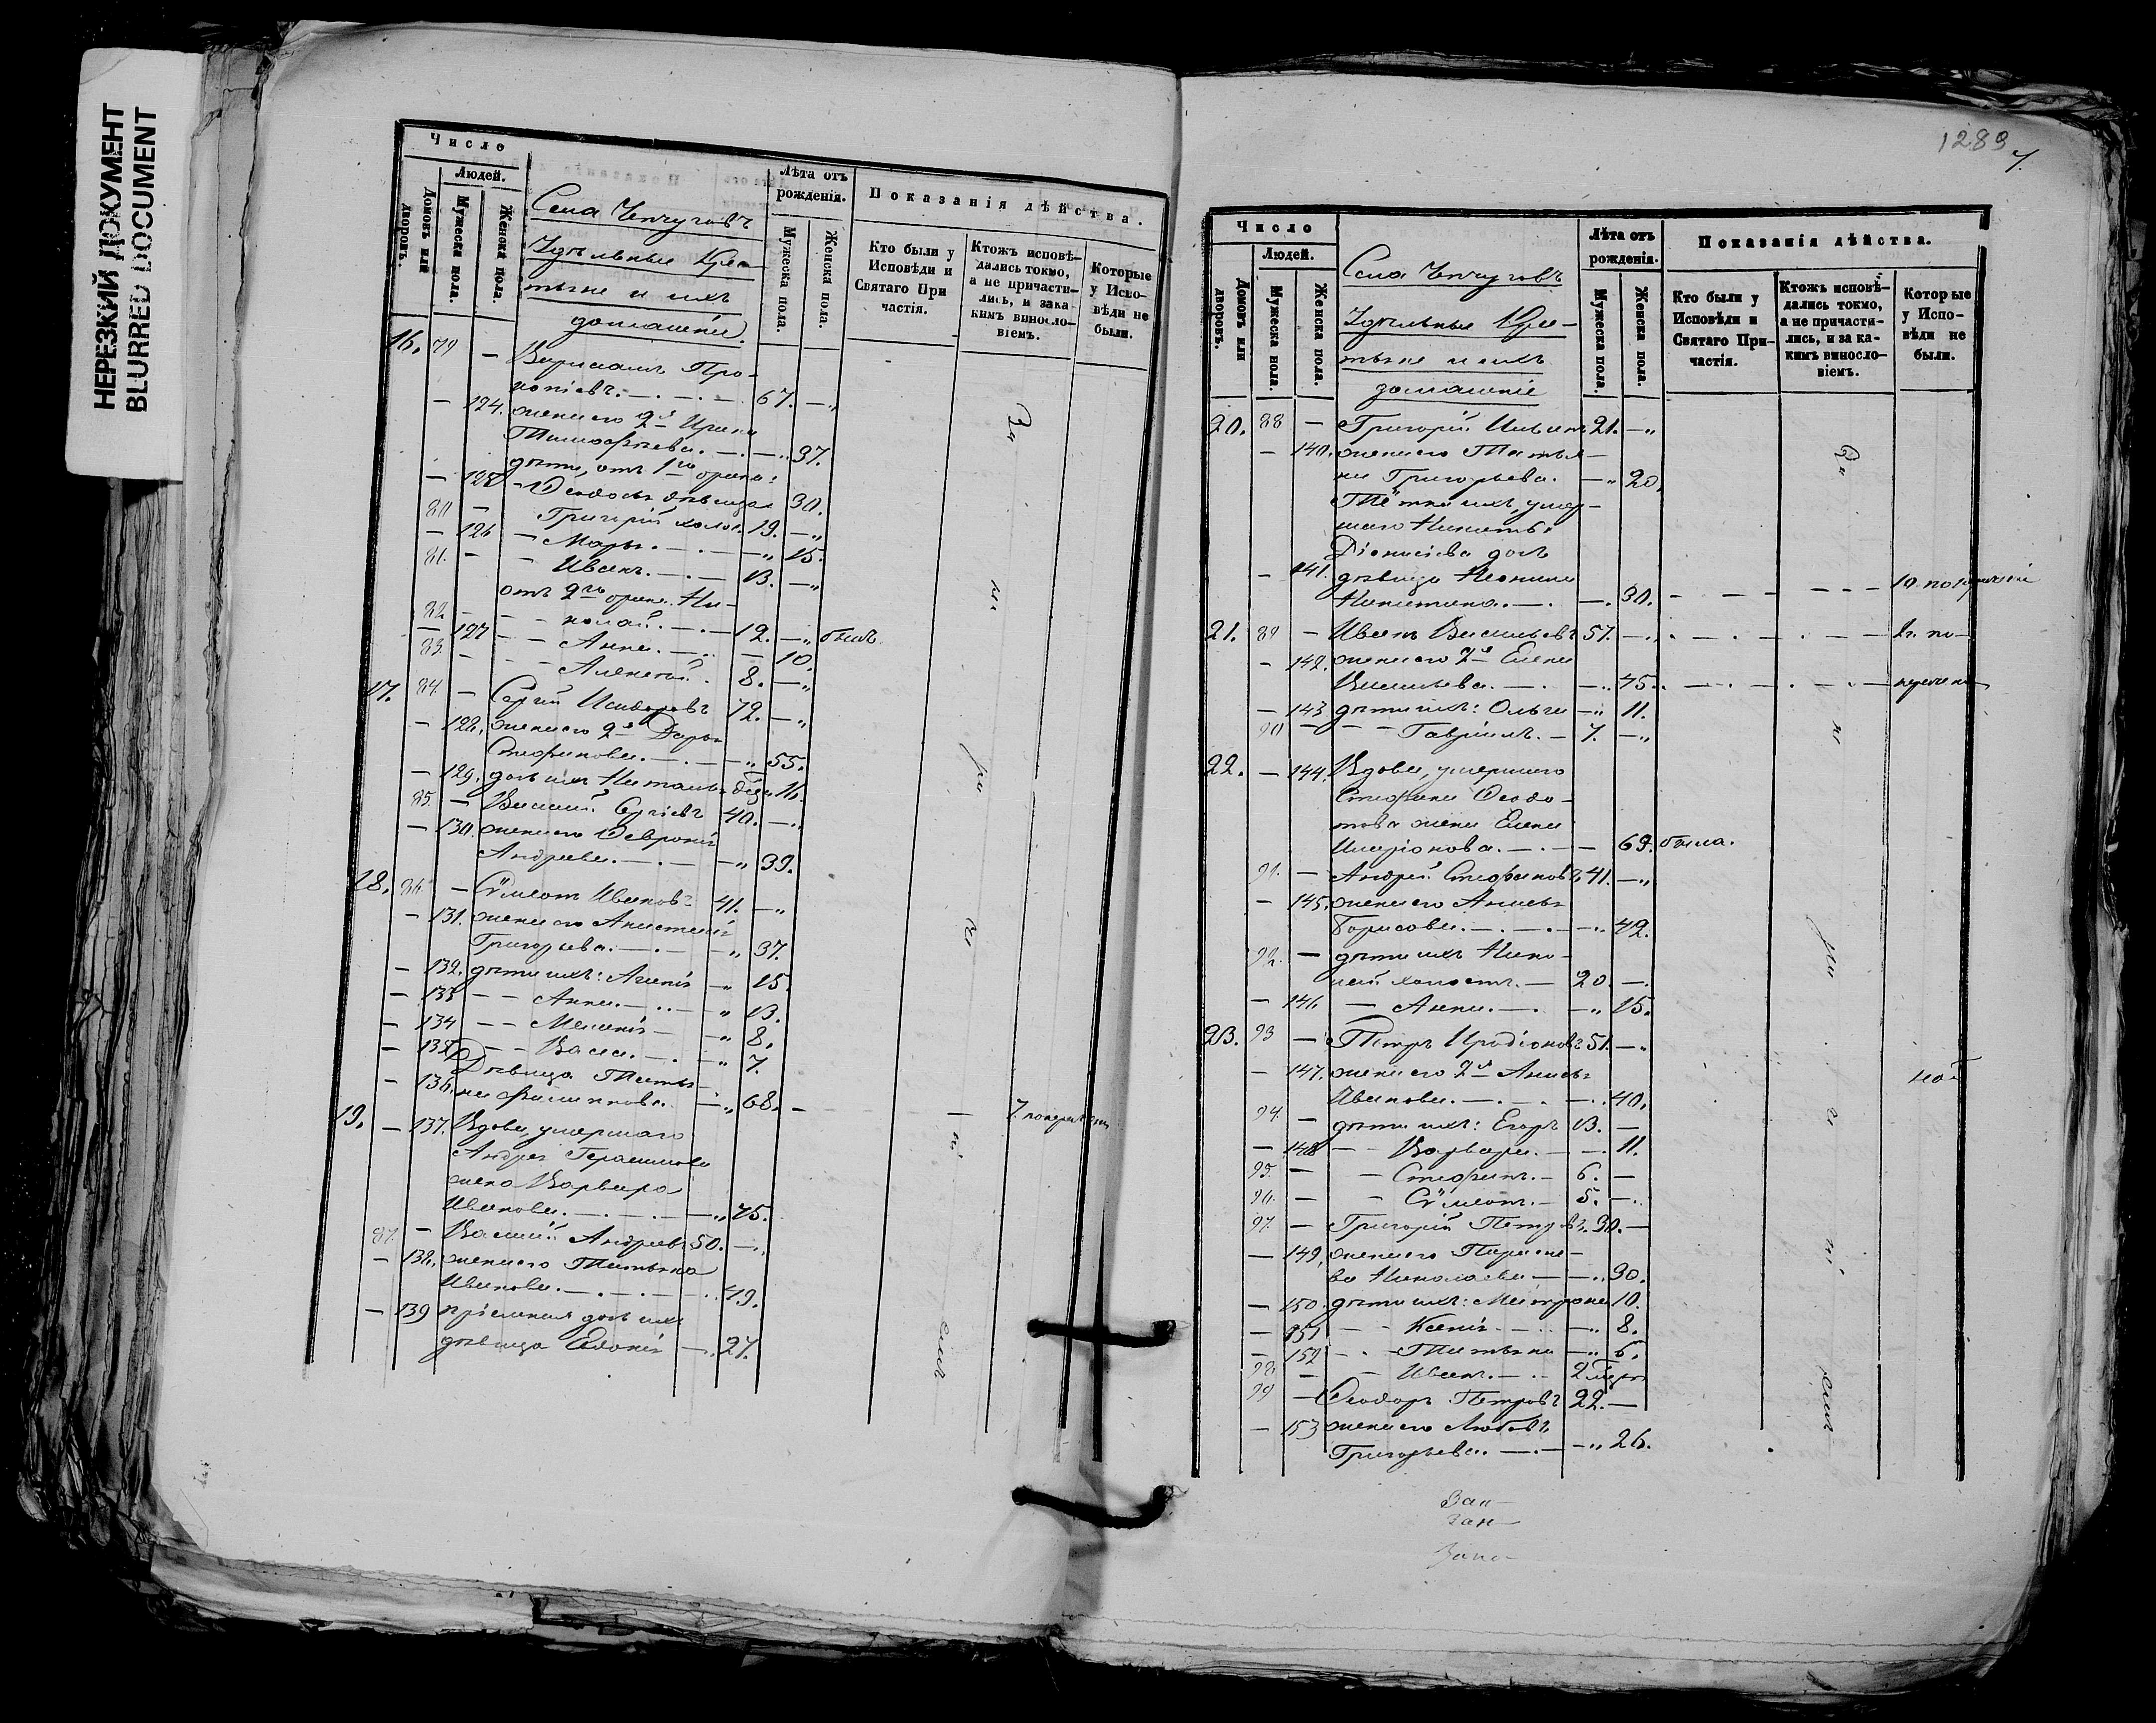 НЕРЕЗКИЙ ДОКУМЕНТ
BLURRED DOCUMENT
Число
Людей.
Домовъ или дворовъ.
Мужеска пола.
Женска пола.
Села
Удѣльные Кре-
стьяне и ихъ
домашніе.
Лѣта отъ рожденія.
Мужеска пола.
Женска пола.
Показанія дѣйства.
Кто были у Исповѣди и Святаго При частія.
Ктожъ исповѣ-
дались токмо,
а не причасти-
лись, и зака-
кимъ винослo-
віемъ.
Которые
у Испо-
вѣди не
были.
16. 79 — Варлаамъ Про-
копіевъ. — 67. — „
— 124. жена его 2я Ирина
Тимофѣева. — „ 37.
дѣти, отъ 1го брака:
— 125 — Ѳеодосья дѣвица 30.
80 — Григорій холос. 19. — „
— 126 — Марья. — „ 15.
81. — — Иванъ. — 13. — „
отъ 2го брака. Ни-
82 — — колай. — 12. — „ былъ.
— 127 — — Анна. — 10.
83. — — Алексѣй. 8. — „
17. 84. — Сергій Исидоровъ 72. — „
— 128. жена его 2я Дарья
Стефанова. — „ 55.
— 129. дочь ихъ Наталья 16.
85. — Василій Сергіевъ 40. — „
— 130. жена его Февронія
Андреева. — „ 39.
18. 86 — Сѵмеонъ Ивановъ 41. — „
— 131. жена его Анастасія
Григорьева. — „ 37.
— 132. дѣти ихъ: Агапія — „ 15.
— 133 — — Анна. — „ 13.
— 134 — — Меланія — „ 8.
— 135 — — Васса. — „ 7.
Дѣвица Татья-
— 136. на Филиппова. — „ 68. —
19. — 137. Вдова, умершаго
Андрея Герасимова
жена Варвара
Иванова. — „ 75.
87. — Василій Андреевъ 50. — „
— 138. жена его Татьяна
Иванова. — „ 49.
— 139 пріемная дочь ихъ
дѣвица Евдокія — „ 27.
1289
7.
Число
Людей.
Домовъ или дворовъ.
Мужеска пола.
Женска пола.
Села
Удѣльные Кре-
стьяне и ихъ
домашніе
Лѣта отъ рожденія.
Мужеска пола.
Женска пола.
Показанія дѣйства.
Кто были у
Исповѣди и
Святаго При-
частія.
Ктожъ исповѣ-
дались токмо,
а не причасти-
лись, и за ка-
кимъ винослo-
віемъ.
Которые
у Испо-
вѣди не
были.
20. 88 — Григорій 21. — „
— 140. жена его Татья-
на Григорьева. — „ 20.
Тётка ихъ, умер-
шаго Никиты
Діонисіева дочь
— 141. дѣвица Неонила
Никитина. — 30.
21. 89 — Иванъ Васильевъ 57. — 2. по-
— 142. жена его 2я Елена
Васильева. — „ 45.
— 143 дѣти ихъ: Ольга — „ 11.
90 — — Гавріилъ. — 7. — „
22. — 144. Вдова, умершаго
Стефана Ѳеодо-
това жена Елена
Иларіонова. — 69. была.
91. — Андрей Стефановъ 41. — „
— 145. жена его Анисья
Борисова. — „ 42.
92. — дѣти ихъ Нико-
лай холостъ. — 20 —
— 146 — Анна. — „ 15.
23. 93 — Петръ Иродіоновъ 51. — „
— 147. жена его 2я Анисья
Иванова. — 40.
94. — дѣти ихъ: Егоръ 13. —
— 148 — — Варвара. — 11.
95. — — Стефанъ. — 6. —
96. — — Сѵмеонъ. — 5. —
97. — Григорій Петровъ. 30. —
— 149, жена его Параске-
ва Николаева — „ 30.
— 150. дѣти ихъ: Матрона 10.
— 151 — — Ксенія — „ 8.
— 152 — — Татьяна — „ 6.
98. — — Иванъ. — 2
99 — Ѳеодоръ Петровъ 22. —
— 153 жена его Любовь
Григорьева. — „ 26.
Зап
зап
Запа